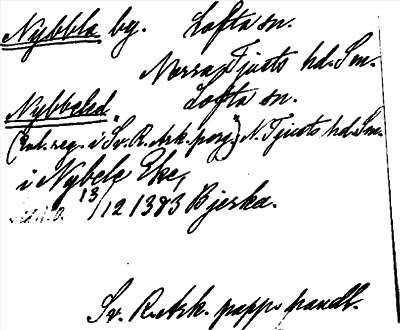 Nybbla by. Lofta sn.
Norra Tjusts hd. Sm.
Nybbeled Lofta sn.
(enl. reg. i "Sv. R. Ark. perg.") N. Tjusts hd. Sm.
i Nybele Eke,
13/12 1383 Bjerka.
Sv. R. Ark. papp. handl.